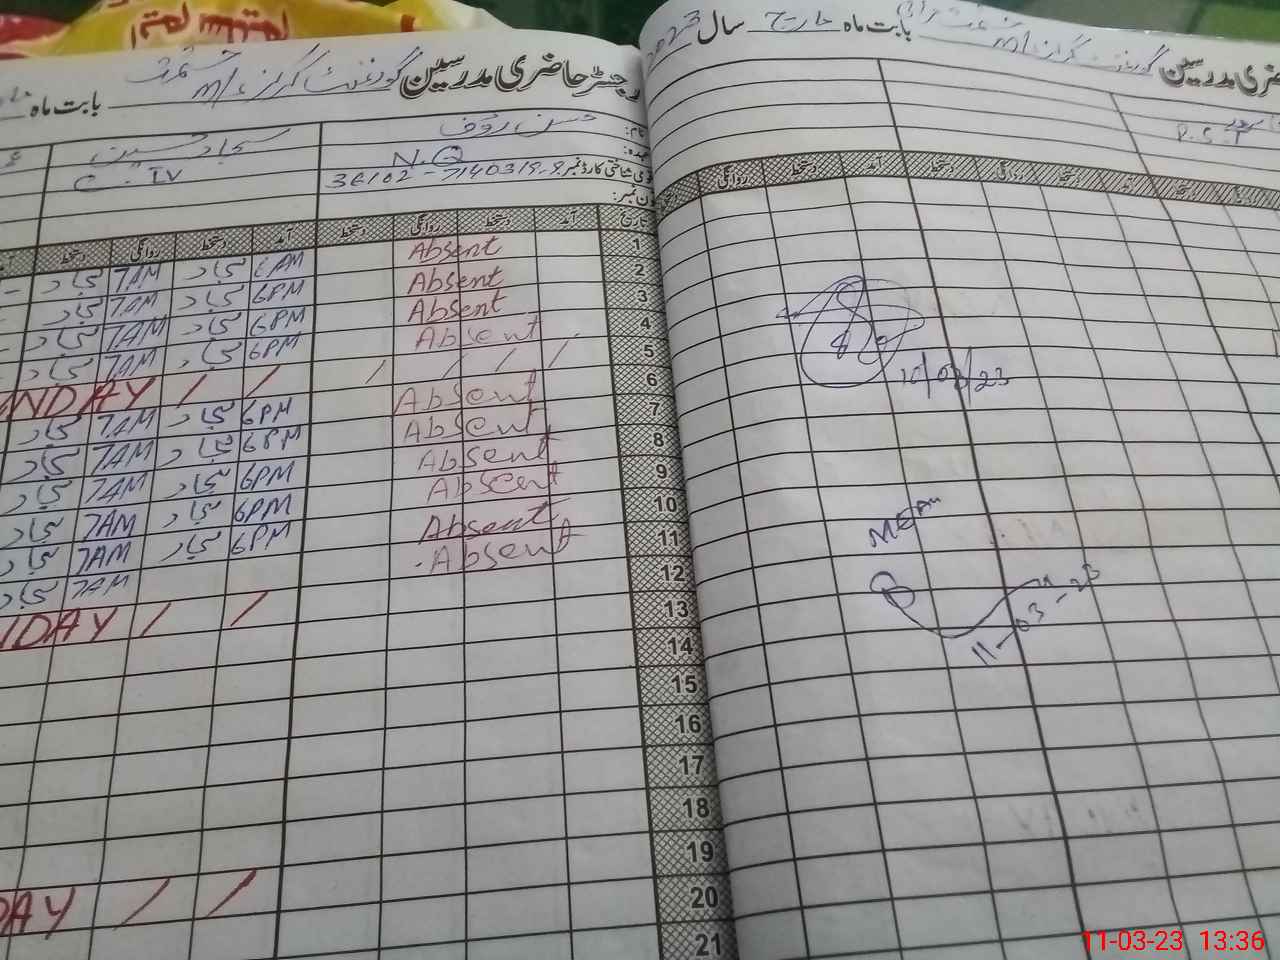 رجسٹر حاضری مدرسین گورنمنٹ گرلز بابت ماہ
نام: حسن رؤف
سجاد حسین
عہدہ: N.Q
C. IV
قومی شناختی کارڈ نمبر 36102-7140319-9
فون نمبر:
تاریخ آمد دستخط روانگی دستخط آمد دستخط روانگی دستخط
1 Absent 6AM سجاد 7AM سجاد
2 Absent 6PM سجاد 7AM سجاد
3 Absent 6PM سجاد 7AM سجاد
4 Absent 6PM سجاد 7AM سجاد
5 / / / / / / NDAY
6 Absent 6PM سجاد 7AM سجاد
7 Absent 6PM سجاد 7AM سجاد
8 Absent 6PM سجاد 7AM سجاد
9 Absent 6PM سجاد 7AM سجاد
10 Absent 6PM سجاد 7AM سجاد
11 Absent 7AM سجاد
12 / / NDAY
13
14
15
16
17
18
19
20 / / DAY
21
حاضری مدرسین گورنمنٹ گرلز بابت ماہ مارچ سال 2023
P.S.T
روانگی دستخط آمد دستخط روانگی دستخط آمد دستخط روانگی
10/03/23
MEA
11-03-23
11-03-23 13:36